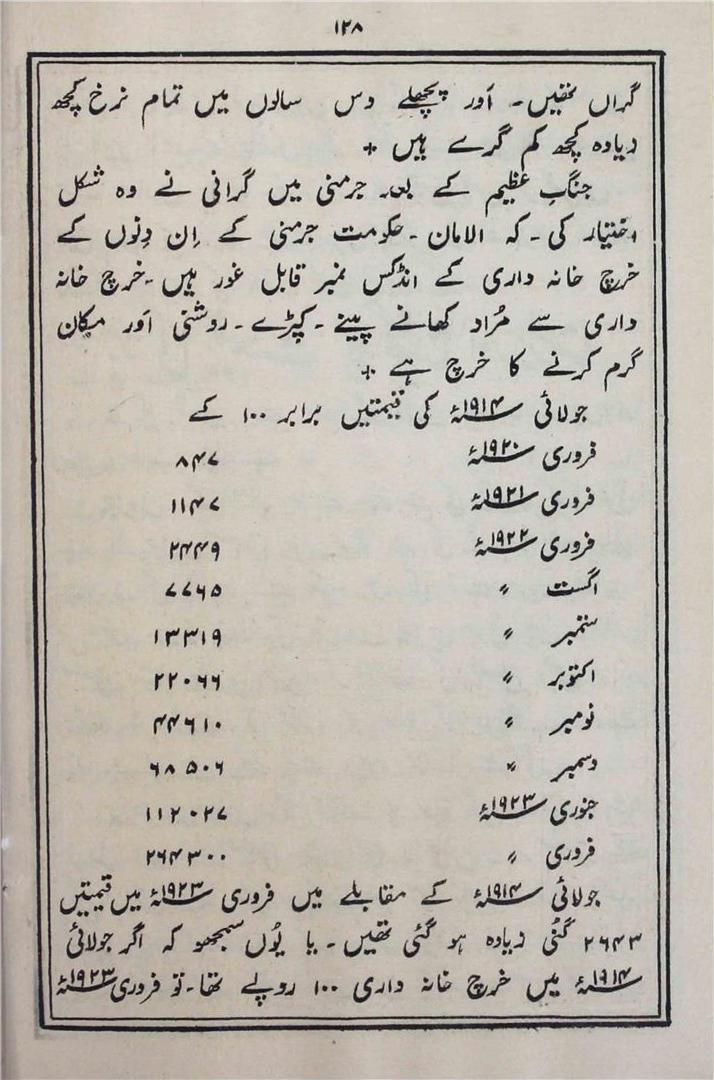 ۱۲۸
گراں تھیں۔ اَور پچھلے دس سالوں میں تمام نرخ کچھ
زیادہ کچھ کم گرے ہیں +
جنگِ عظیم کے بعد جرمنی میں گرانی نے وہ شکل
اختیار کی۔ کہ الامان۔ حکومت جرمنی کے اِن دِنوں کے
خرچ خانہ داری کے انڈکس نمبر قابل غور ہیں۔ خرچ خانہ
داری سے مُراد کھانے پینے۔ کپڑے۔ روشنی اَور مکان
گرم کرنے کا خرچ ہے +
جولائی ۱۹۱۴ء کی قیمتیں برابر ۱۰۰ کے
فروری ۱۹۲۰ء ۸۴۷
فروری ۱۹۲۱ء ۱۱۴۷
فروری ۱۹۲۲ء ۲۴۴۹
اگست 〃 ۷۷۶۵
ستمبر 〃 ۱۳۳۱۹
اکتوبر 〃 ۲۲۰۶۶
نومبر 〃 ۴۴۶۱۰
دسمبر 〃 ۶۸۵۰۶
جنوری ۱۹۲۳ء ۱۱۲۰۲۷
فروری 〃 ۲۶۴۳۰۰
جولائی ۱۹۱۴ء کے مقابلے میں فروری ۱۹۲۳ء میں قیمتیں
۲۶۴۳ گُنی زیادہ ہو گئی تھیں۔ یا یُوں سمجھو کہ اگر جولائی
۱۹۱۴ء میں خرچ خانہ داری ۱۰۰ روپے تھا۔ تو فروری ۱۹۲۳ء